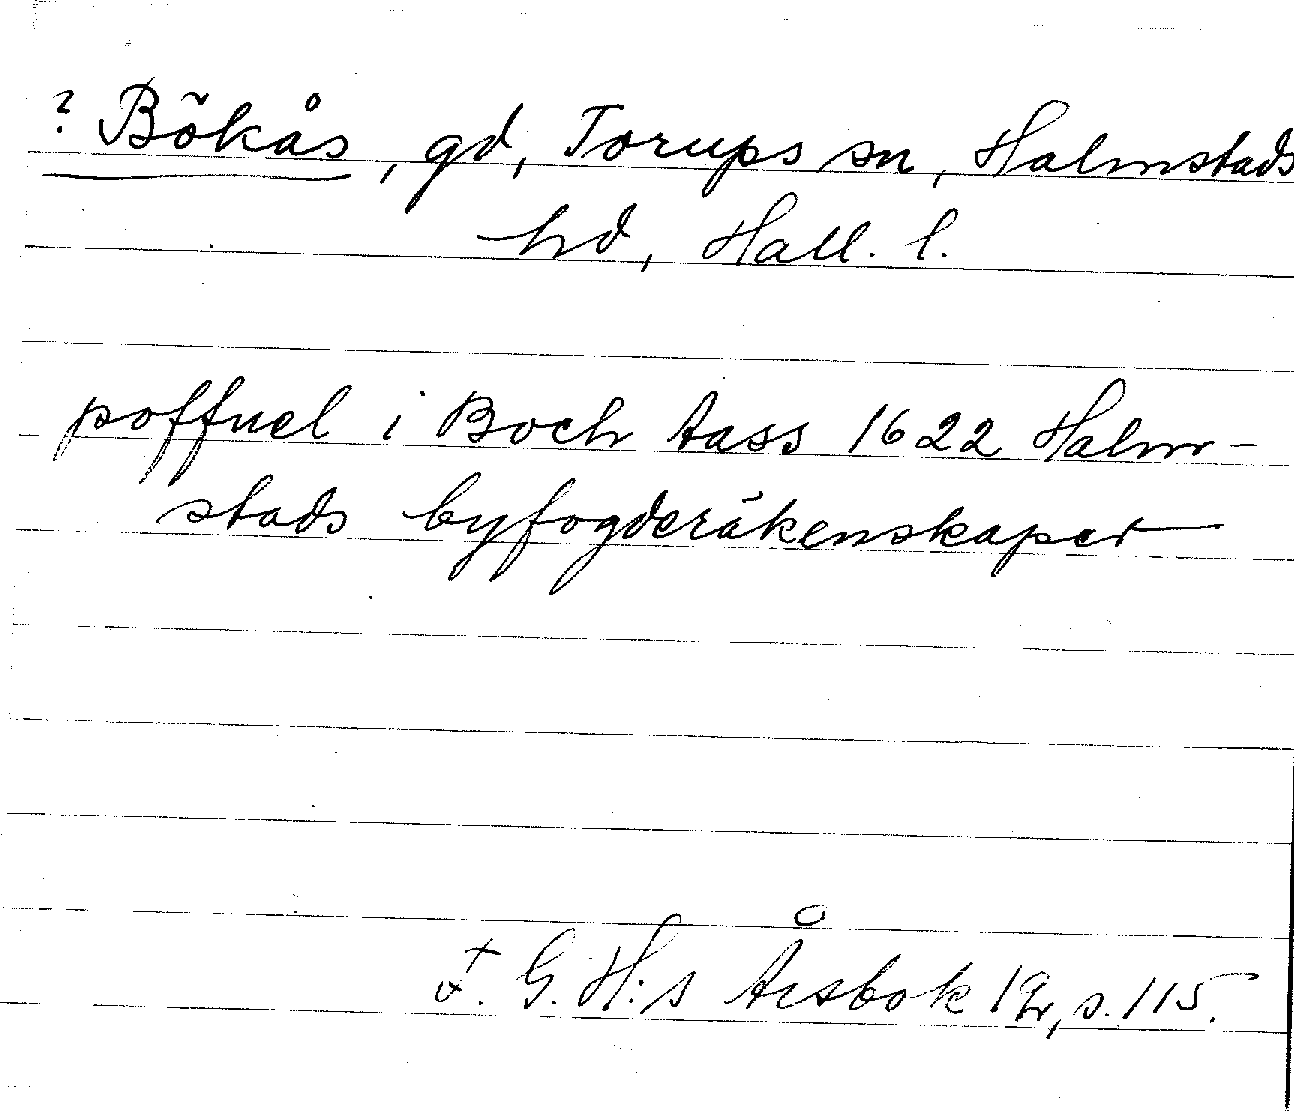 ? Bökås, gd, Torups sn, Halmstads
hd, Hall. l.
poffuel i Boch Aass 1622 Halm-
stads byfogderäkenskaper
G. H:s Årsbok s. 115.